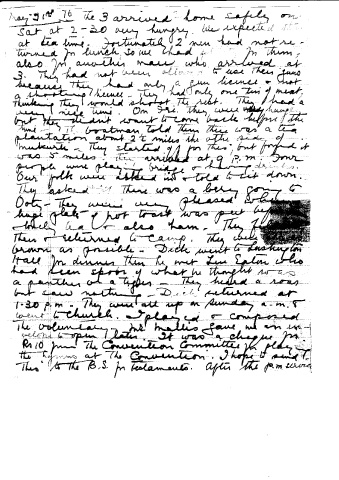 May 31st, 76 the 3 arrived home safely on
Sat at 2-30 very hungry. We expected
at tea time. Fortunately 2 men had not re-
turned for lunch so we had for them,
also for another man who arrived at
3. They had not been to use their guns
because they had only a gun licence & not
a shooting licence. They had only one tin of meat,
thinking they would shoot the rest. They had a
very nice time. On Fri. they were very hungry
but they didn't want to come back before the
time. A boatman told them there was a tea
plantation about 2 miles the other side of
Mukurti. They started for this but found it
was 5 miles & they arrived at 9 p.m. Four
people were playing bridge & having drinks
Our folk were asked in & told to sit down.
They asked if there was a lorry going to
Ooty — they were very pleased when
huge plate of hot toast was put
lovely tea & also ham. They
then & returned to camp. They were
brown as possible — Dick went to Lushington
Hall for dinner then he met Les Eaton who
had seen spoor of what he thought was
a panther or a tiger — they heard a roar
but saw nothing — Dick returned at
1.30 p.m. — They were all up on Sunday a.m. &
went to church. I played & composed
the voluntary. Mr Mallis gave me an en-
velope to open later. It was a cheque for
Rs 10 from the Convention Committee for play-
the hymns at The Convention. I hope to send
this to the B.S. for testaments. After the p.m. service